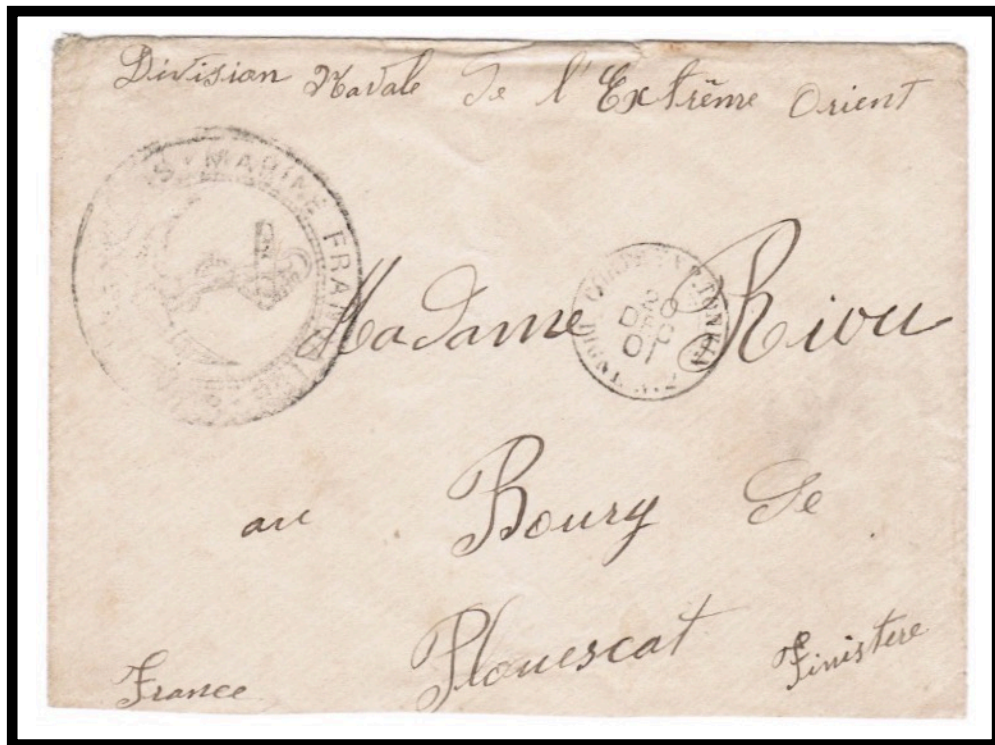 Division Navale de l'Extrême Orient
MARINE FRANÇAISE
CORR. D'ARM
TONKIN
20
DEC
01
Madame Riou
au Bourg de
Plouescat Finistere
France